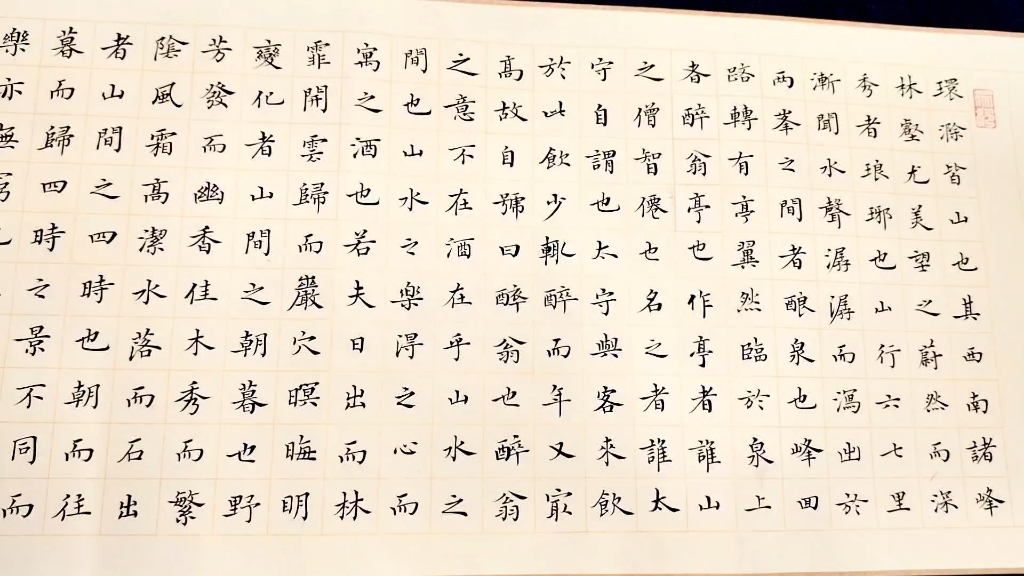 環滁皆山也其西南諸峰
林壑尤美望之蔚然而深
秀者琅琊也山行六七里
漸聞水聲潺潺而瀉出於
兩峯之間者釀泉也峰回
路轉有亭翼然臨於泉上
者醉翁亭也作亭者誰山
之僧智僊也名之者誰太
守自謂也太守與客來飲
於此飲少輒醉而年又最
高故自號曰醉翁也醉翁
之意不在酒在乎山水之
間也山水之樂得之心而
寓之酒也若夫日出而林
霏開雲歸而巖穴暝晦明
變化者山間之朝暮也野
芳發而幽香佳木秀而繁
陰風霜高潔水落而石出
者山間之四時也朝而往
暮而歸四時之景不同而
樂亦無窮也